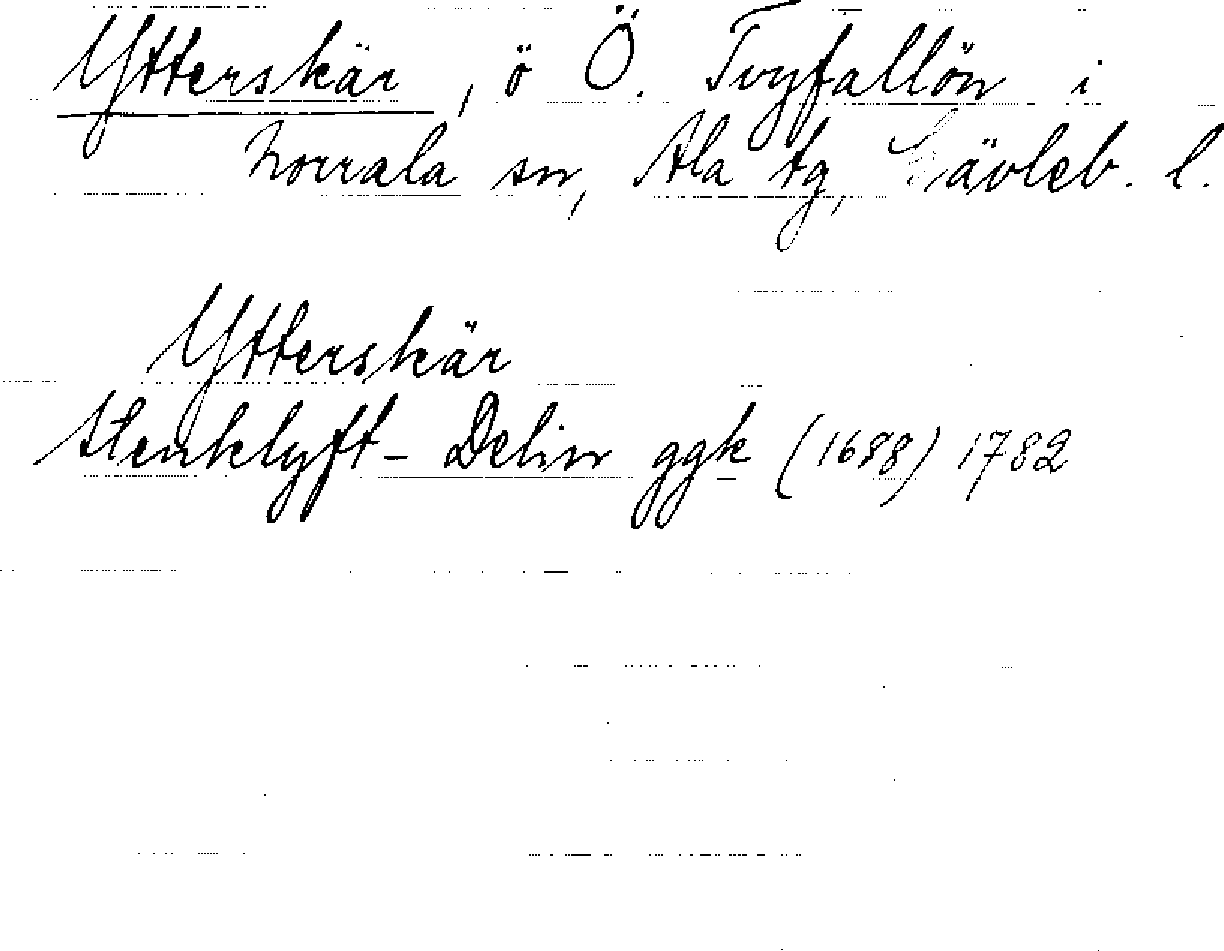 Ytterskär, ö Ö. Tvyfallön i
Norrala sn, Ala tg, Gävleb. l.
Ytterskär
Stenklyft- Delin ggk (1688) 1782